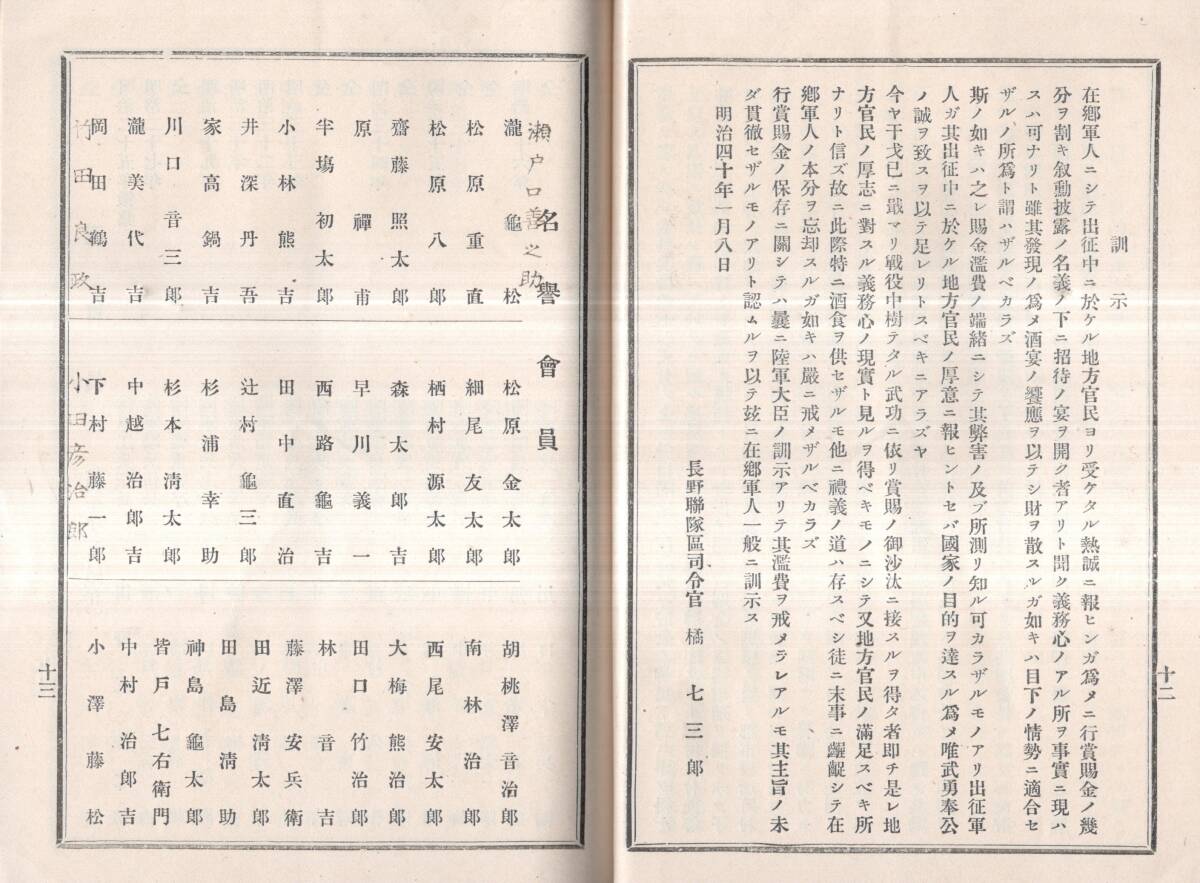 十二
訓示
在鄕軍人ニシテ出征中ニ於ケル地方官民ヨリ受ケタル熱誠ニ報ヒンガ爲メニ行賞賜金ノ幾
分ヲ割キ叙勳披露ノ名義ノ下ニ招待ノ宴ヲ開ク者アリト聞ク義務心ノアル所ヲ事實ニ現ハ
スハ可ナリト雖其發現ノ爲メ酒宴ノ饗應ヲ以テシ財ヲ散スルガ如キハ目下ノ情勢ニ適合セ
ザルノ所爲ト謂ハザルベカラズ
斯ノ如キハ之レ賜金濫費ノ端緒ニシテ其弊害ノ及ブ所測リ知ル可カラザルモノアリ出征軍
人ガ其出征中ニ於ケル地方官民ノ厚意ニ報ヒントセバ國家ノ目的ヲ達スル爲メ唯武勇奉公
ノ誠ヲ致スヲ以テ足レリトスベキニアラズヤ
今ヤ干戈已ニ戢マリ戰役中樹テタル武功ニ依リ賞賜ノ御沙汰ニ接スルヲ得タ者即チ是レ地
方官民ノ厚志ニ對スル義務心ノ現實ト見ルヲ得ベキモノニシテ又地方官民ノ滿足スベキ所
ナリト信ズ故ニ此際特ニ酒食ヲ供セザルモ他ニ禮義ノ道ハ存スベシ徒ニ末事ニ齷齪シテ在
鄕軍人ノ本分ヲ忘却スルガ如キハ嚴ニ戒メザルベカラズ
行賞賜金ノ保存ニ關シテハ曩ニ陸軍大臣ノ訓示アリテ其濫費ヲ戒メラレアルモ其主旨ノ未
ダ貫徹セザルモノアリト認ムルヲ以テ玆ニ在鄕軍人一般ニ訓示ス
明治四十年一月八日
長野聯隊區司令官 橘七三郎
名譽會員
瀨戸口善之助
瀧龜松
松原重直
松原八郎
齋藤照太郎
原禪甫
半塲初太郎
小林熊吉
井深丹吾
家高鍋吉
川口音三郎
瀧美代吉
岡田鶴吉
竹田良政
松原金太郎
細尾友太郎
栖村源太郎
森太郎吉
早川義一
西路龜吉
田中直治
辻村龜三郎
杉浦幸助
杉本淸太郎
中越治郎吉
下村藤一郎
小田彦治郎
胡桃澤音治郎
南林治郎
西尾安太郎
大梅熊治郎
田口竹治郎
林音吉
藤澤安兵衛
田近淸太郎
田島淸助
神島龜太郎
皆戸七右衛門
中村治郎吉
小澤藤松
十三